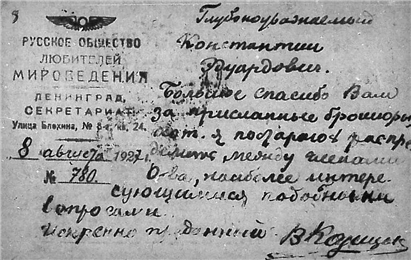 Глубокоуважаемый
РУССКОЕ ОБЩЕСТВО
ЛЮБИТЕЛЕЙ
МИРОВЕДЕНИЯ
ЛЕНИНГРАД,
СЕКРЕТАРИАТ:
Улица Блохина, № кв. 24.
8 августа 192
№ 780.
Константин
Эдуардович.
Большое спасибо Вам
за присланные брошюры
я постараюсь распре
делить между членами
О-ва, наиболее интере
сующимися подобными
вопросами.
Искренно преданный